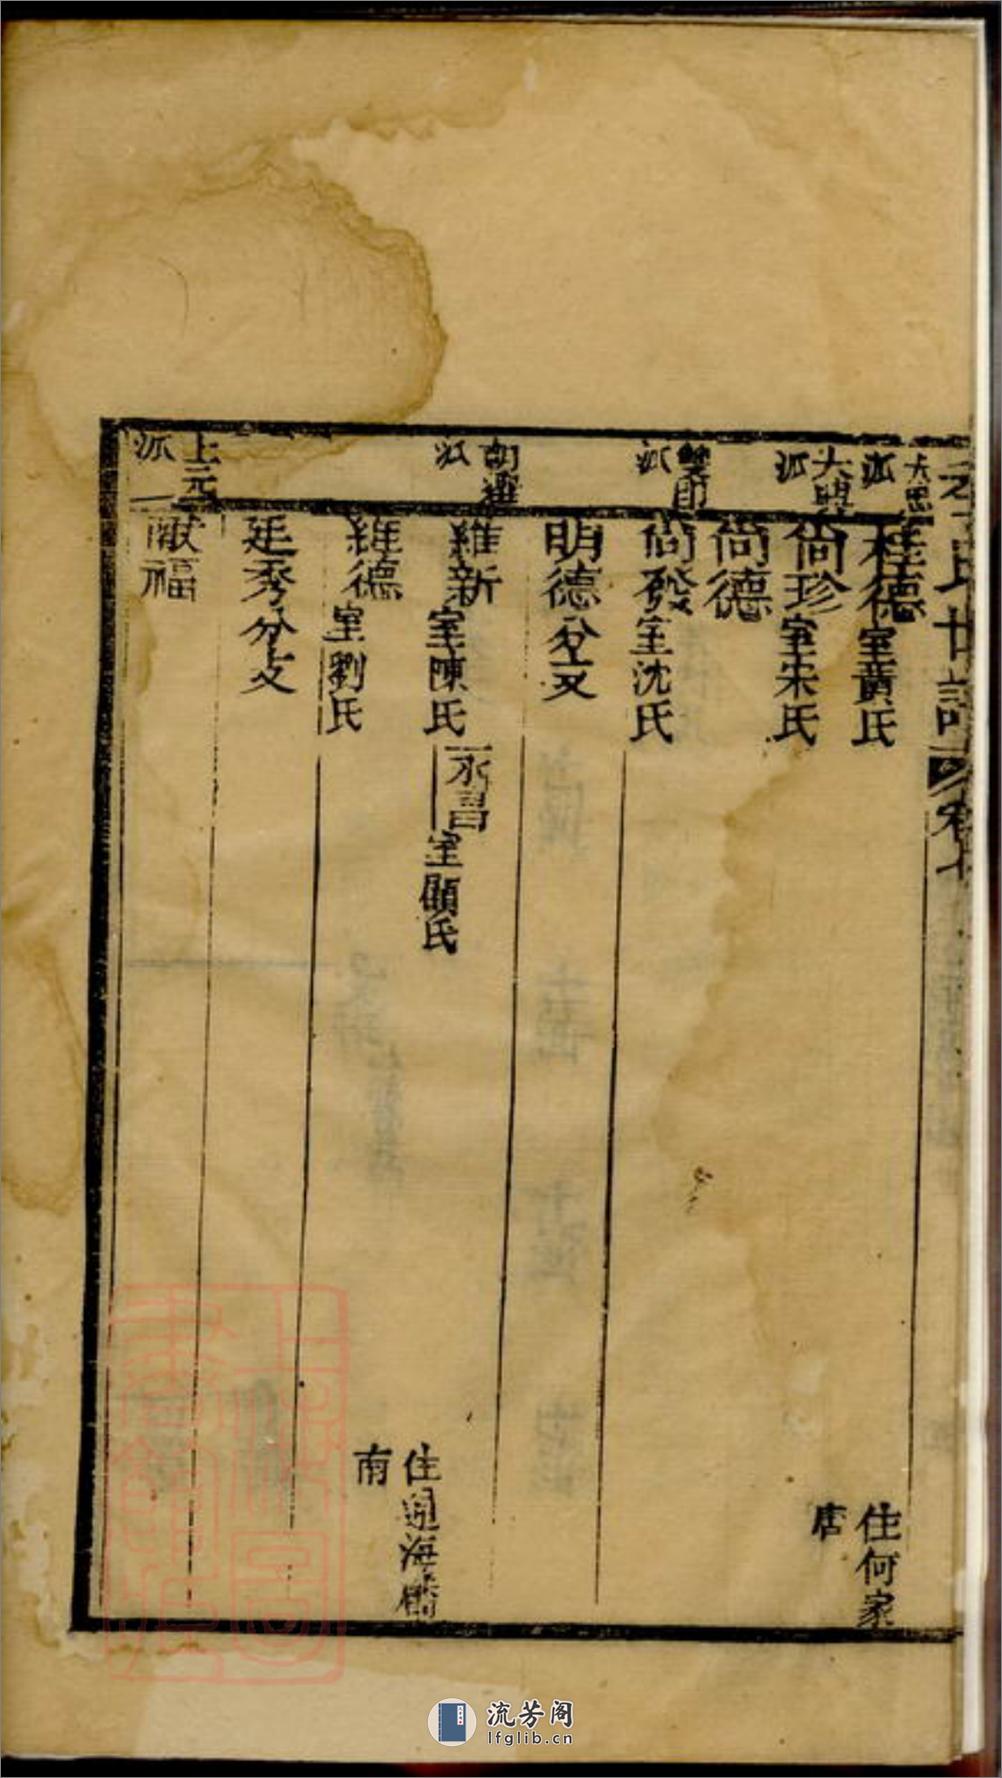 李氏世譜 卷七
大思派
桂德室黃氏
住何家店
大興派
尚珍室宋氏
尚德
雙節派
尚發室沈氏
明德分支
胡進派
維新室陳氏
永昌室顧氏
住通海橋南
維德室劉氏
廷秀分支
上元派
獻福
流芳阁
lfglib.cn